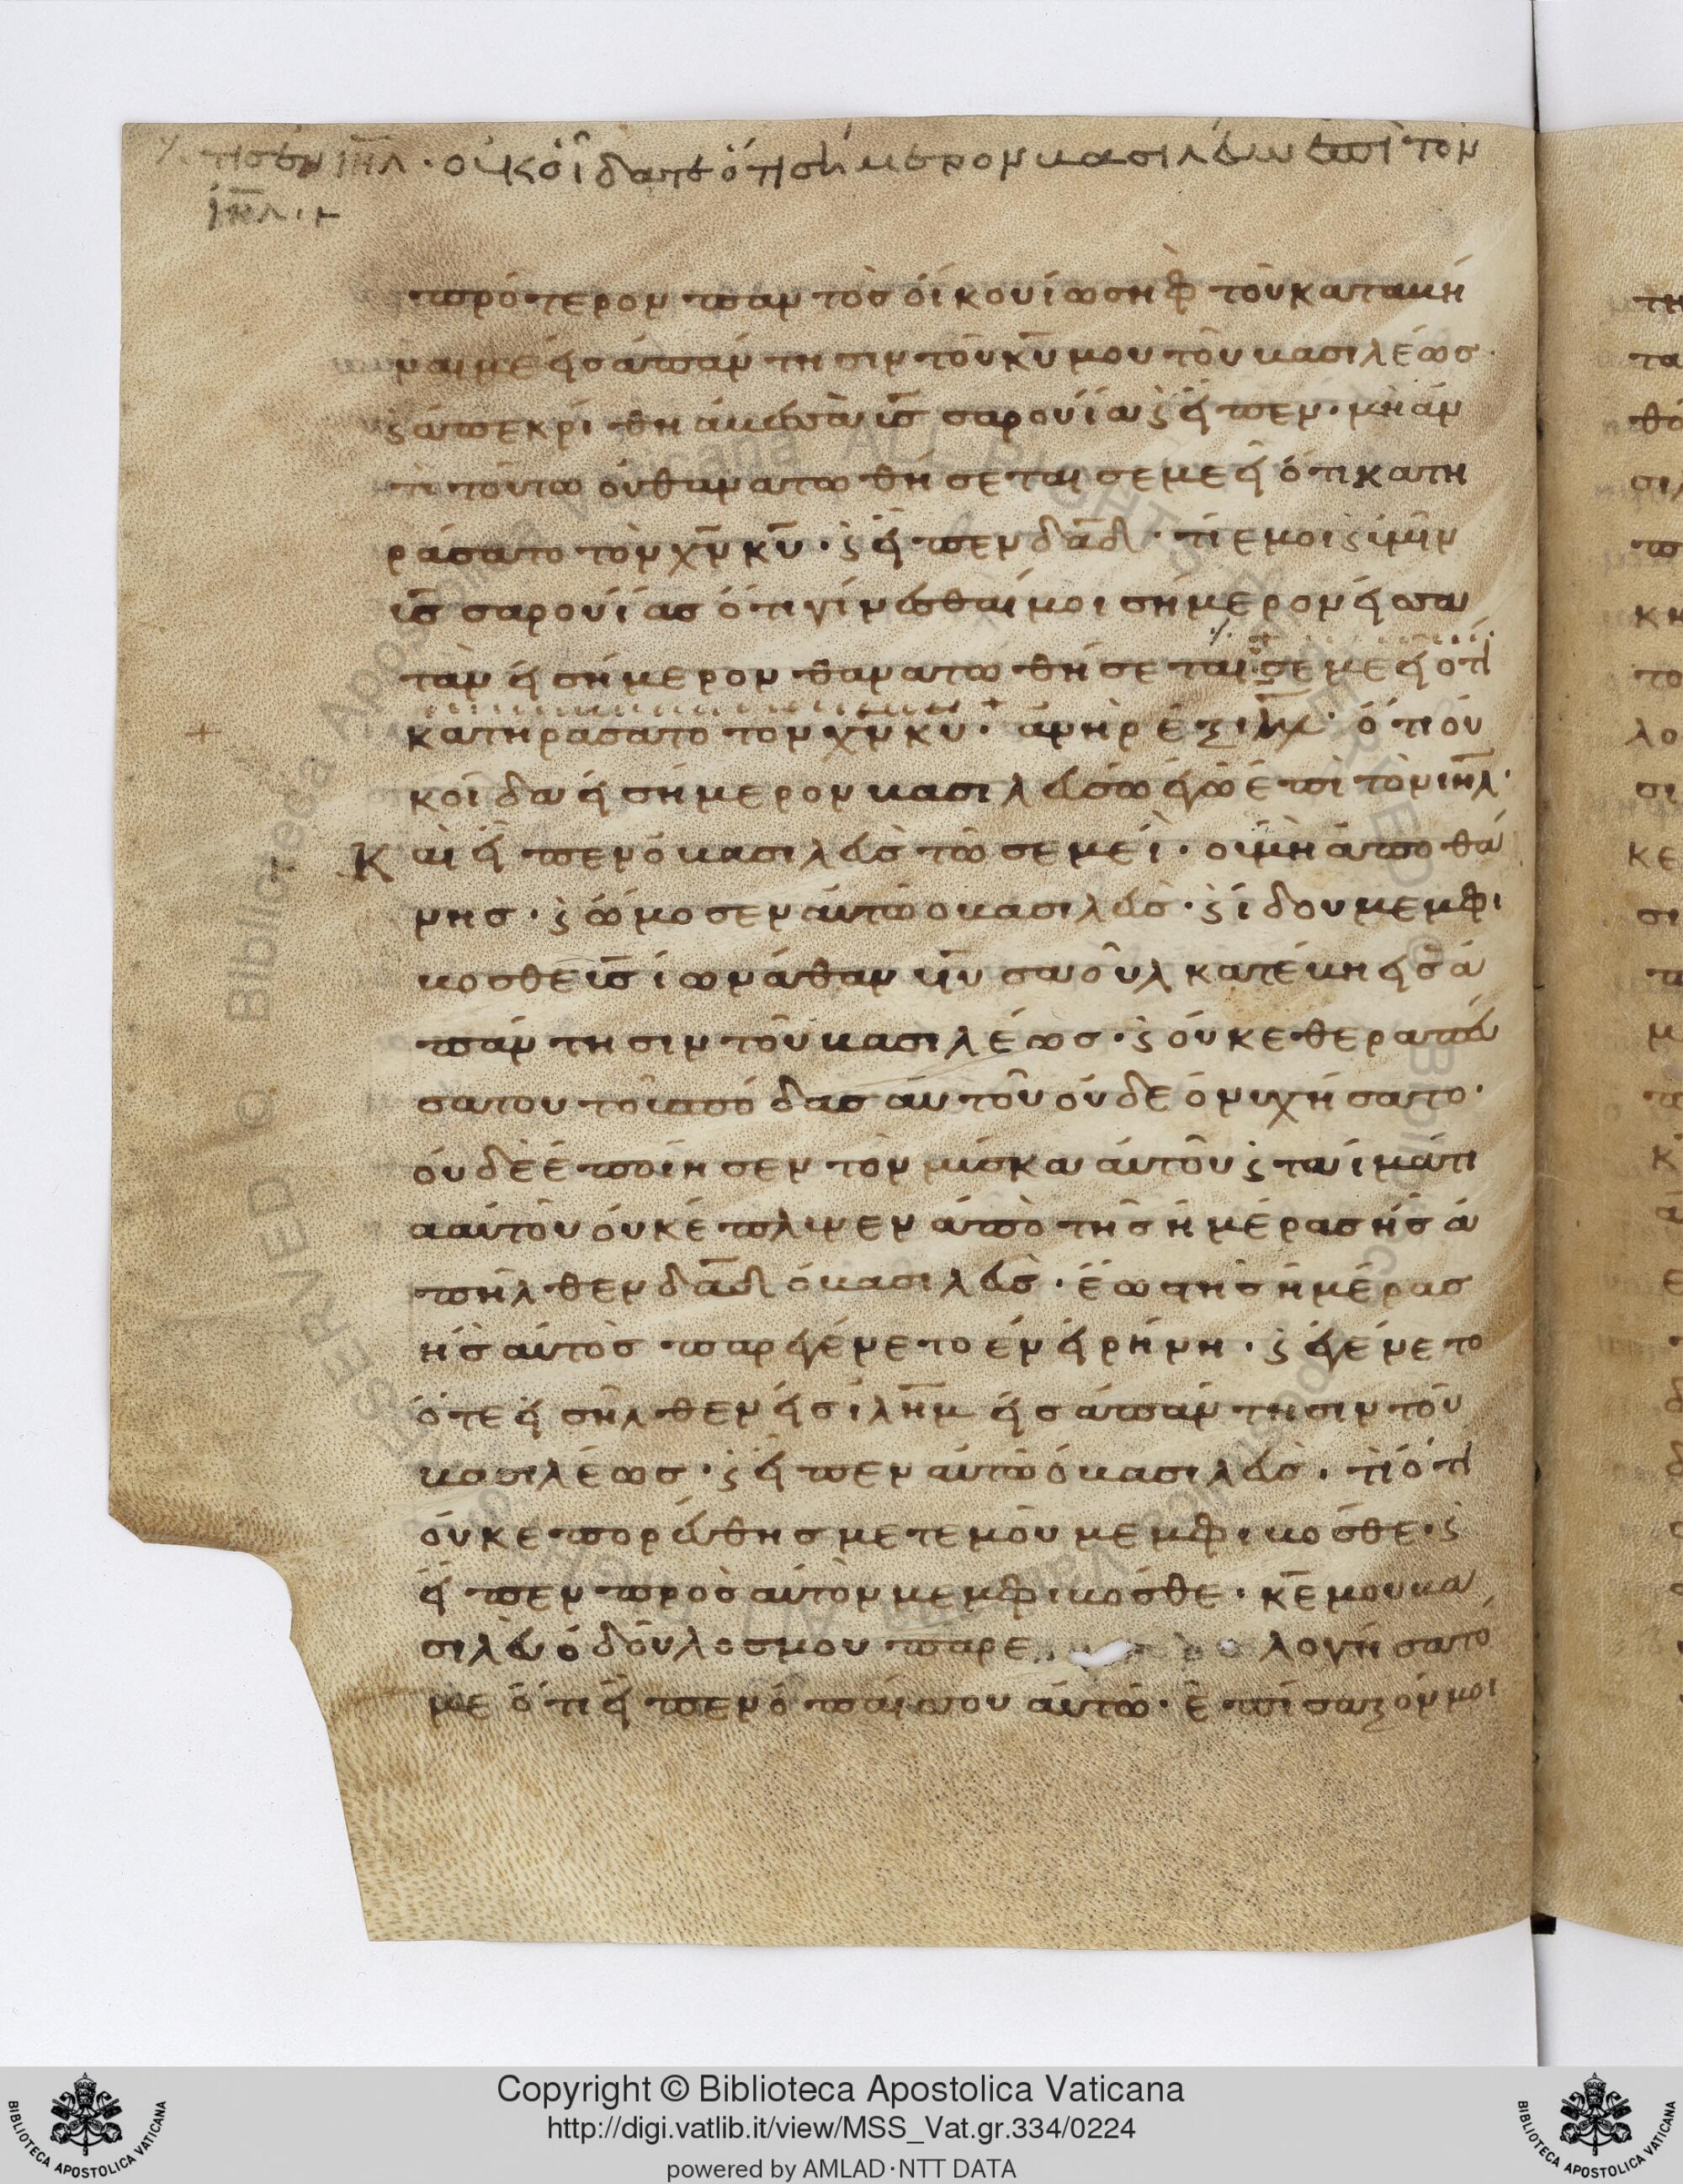 τισ ἐν ιηλ · οὐκ οἴδατε ὅτι σήμερον βασιλεύω ἐπὶ τὸν
ιηλ · +
πρότερον παντὸς οἴκου ἰωσὴφ τοῦ καταβῆ
ναι με εἰς ἀπάντησιν τοῦ κυ μου τοῦ βασιλέωσ ·
ϗ ἀπεκρίθη ἀβεσσὰ υσ σαρουΐα ϗ εἶπεν · μὴ ἀν
τὶ τούτω οὐ θανατωθήσεται σεμεεὶ ὅτι κατη
ράσατο τὸν χν κυ · ϗ εἶπεν δαδ · τί ἐμοὶ ϗ ὑμῖν
υσ σαρουΐασ ὅτι γίνεσθαί μοι σήμερον εἰς σα
τὰν εἰ σήμερον θανατωθήσεται σεμεεὶ ὅτι
κατηράσατο τον χν κυ · ἀνὴρ ἐξ ιηλ · ὅτι οὐ
κ οἶδα εἰ σήμερον βασιλεύσω ἐγὼ ἐπὶ τὸν ιηλ ·
Καὶ εἶπεν ὁ βασιλεὺσ τῶ σεμεεὶ · οὐ μὴ ἀποθά
νησ · ϗ ὤμοσεν αὐτῶ ο βασιλεὺσ · ϗ ἰδου μεμφι
βοσθε υσ ἰωνάθαν υυ σαοῦλ κατέβη εἰς ἀ
πάντησιν τοῦ βασιλέωσ · ϗ οὐκ εθεραπεύ
σα του τοὺς πόδασ αὐτοῦ οὐδὲ ὀνυχήσατο ·
οὐδὲ ἐποίησεν τὸν μύσκα αὐτοῦ ϗ τα ἱμάτι
α αὐτοῦ οὐκ έπλυνεν ἀπὸ τῆς ἡμέρασ ἧς ἀ
πῆλθεν δαδ ὁ βασιλεὺσ · ἕως τῆς ἡμέρασ
ἧς αὐτὸς παρεγένετο ἐν εἰρήνη · ϗ ἐγένετο
ὅτε εἰσῆλθεν εἰς ιλημ εἰς ἀπάντησιν τοῦ
βασιλέωσ · ϗ εἶπεν αὐτῶ ὁ βασιλεὺσ · τὶ ὅτι
οὐκ επορεύθησ μετ εμοῦ μεμφιβοσθε · ϗ
εἶπεν πρὸς αὐτὸν μεμφιβοσθε · κε μου βα
σιλεῦ ὁ δοῦλοσ μου παρε λογήσατό
με ὅτι εἶπεν ὁ παῖς σου αὐτῶ · ἐπίσαξόν μοι
Copyright © Biblioteca Apostolica Vaticana
http://digi.vatlib.it/view/MSS_Vat.gr.334/0224
powered by AMLAD·NTT DATA
BIBLIOTECA APOSTOLICA VATICANA
BIBLIOTECA APOSTOLICA VATICANA